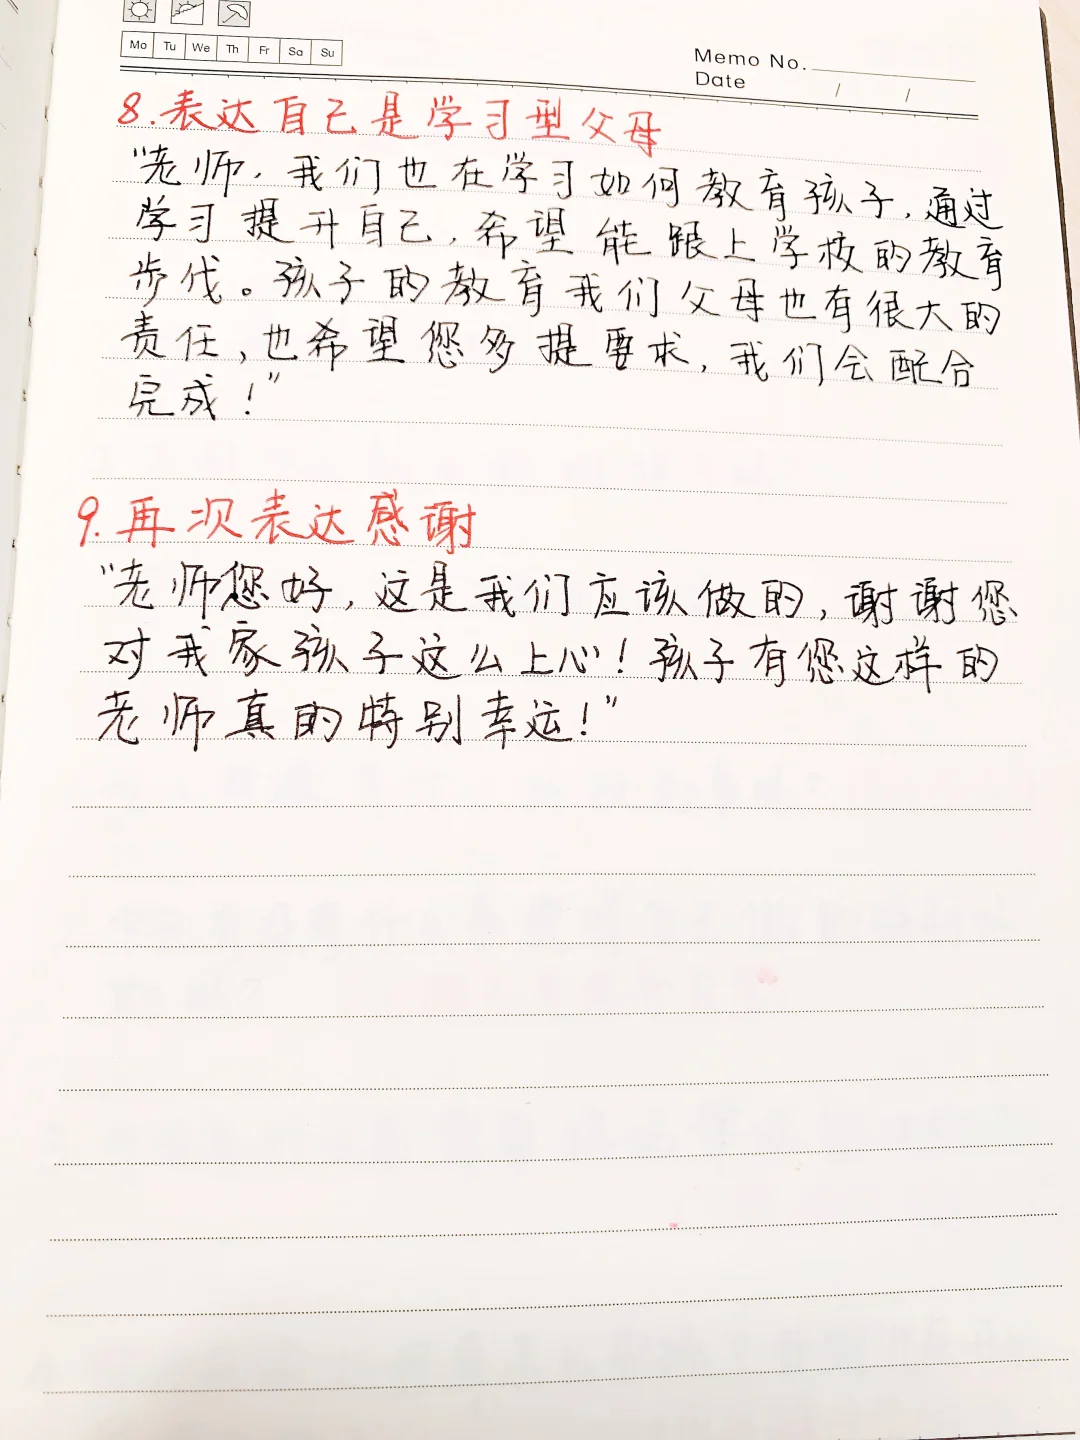 Mo Tu We Th Fr Sa Su
Memo No.
Date / /
8.表达自己是学习型父母
"老师，我们也在学习如何教育孩子，通过
学习提升自己，希望能跟上学校的教育
步伐。孩子的教育我们父母也有很大的
责任，也希望您多提要求，我们会配合
完成！"
9.再次表达感谢
"老师您好，这是我们应该做的，谢谢您
对我家孩子这么上心！孩子有您这样的
老师真的特别幸运！"